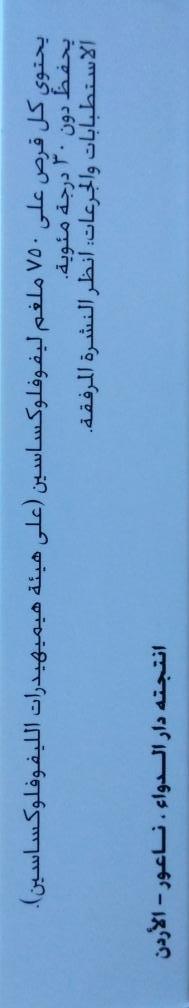 يحتوي كل قرص على ٧٥٠ ملغم ليفوفلوكساسين (على هيئة هيميهيدرات الليفوفلوكساسين).
يحفظ دون ٣٠ درجة مئوية.
الاستطبابات والجرعات: انظر النشرة المرفقة.
انتجته دار الدواء، ناعور - الأردن